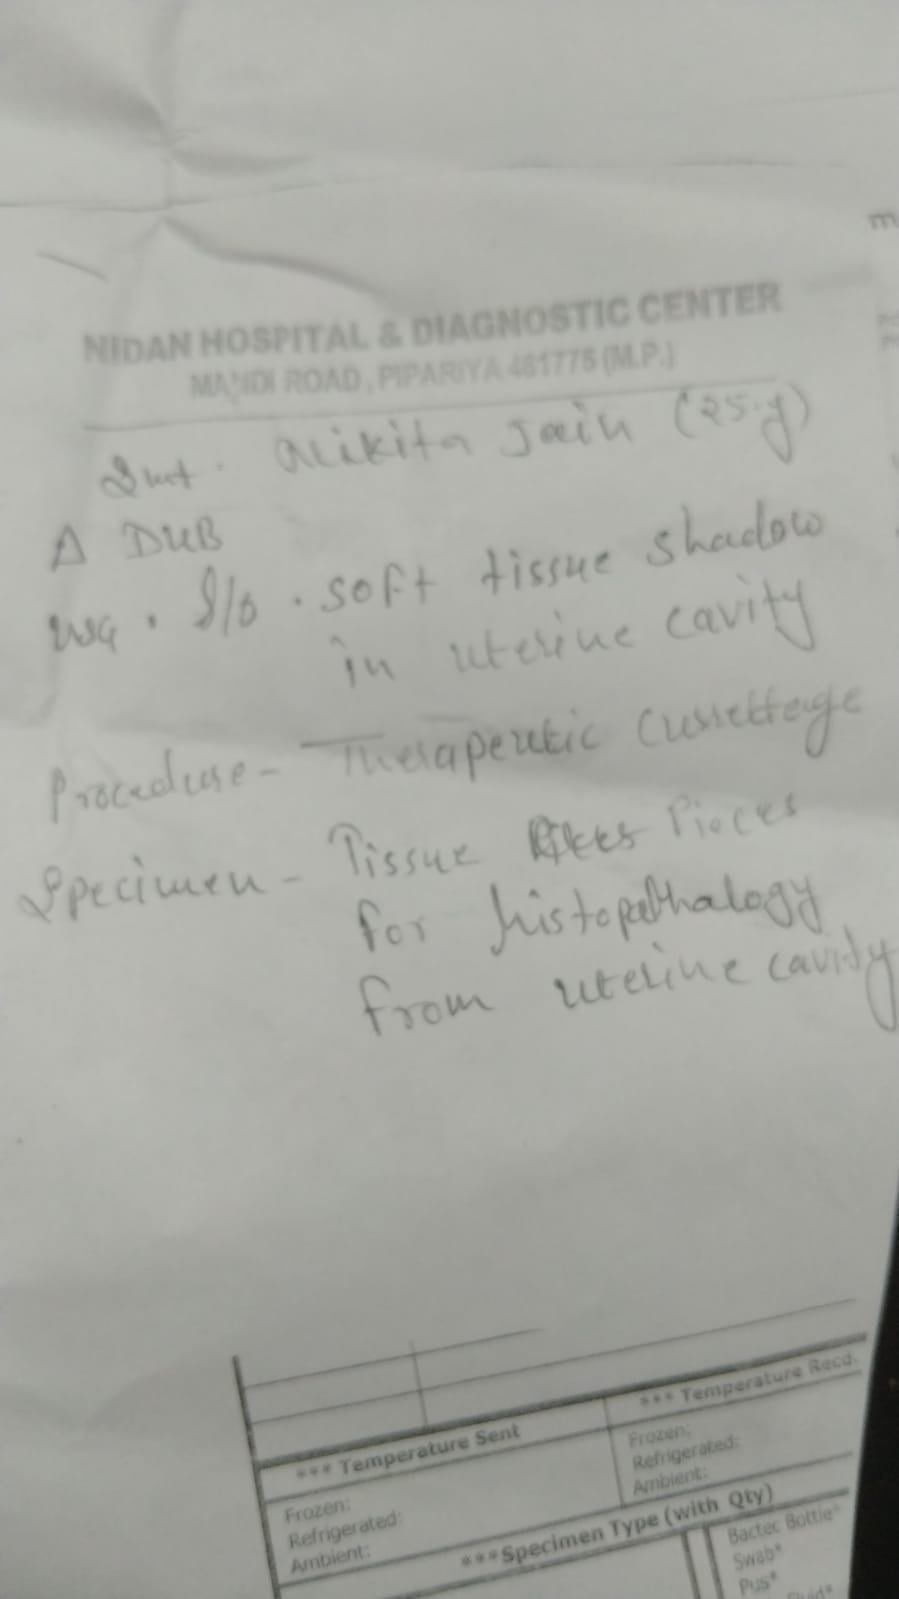 m
NIDAN HOSPITAL & DIAGNOSTIC CENTER
MANDI ROAD, PIPARIYA 461775 (M.P.)
Smt. Nikita Jain (25.y)
Δ DUB
USG. S/o. soft tissue shadow
in uterine cavity
Procedure - Therapeutic Curettage
Specimen - Tissue Pieces
for histopathalogy
from uterine cavity
*** Temperature Sent
*** Temperature Recd.
Frozen:
Refrigerated:
Ambient:
Frozen:
Refrigerated:
Ambient:
***Specimen Type (with Qty)
Bactec Bottle*
Swab*
Pus*
Fluid*